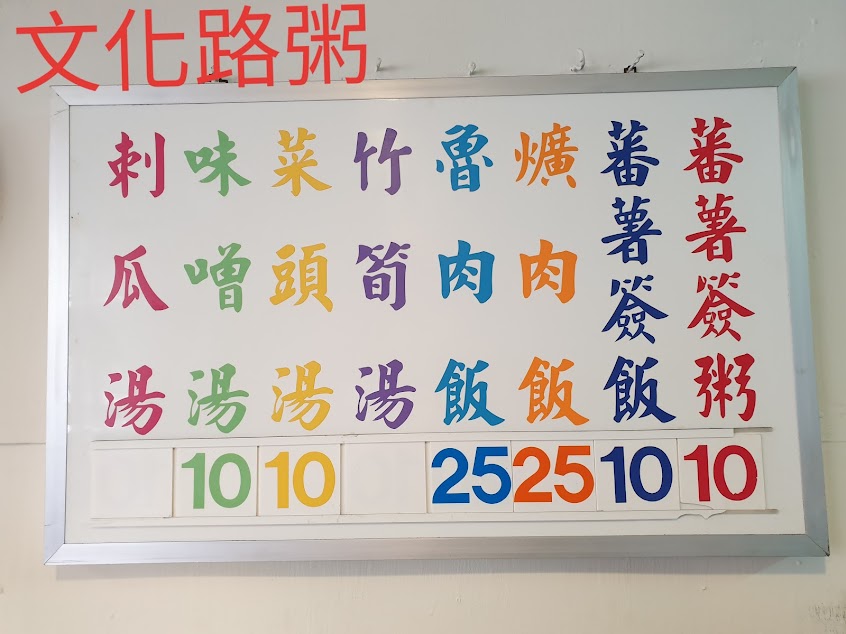 文化路粥
蕃薯簽粥 10
蕃薯簽飯 10
爌肉飯 25
魯肉飯 25
竹筍湯
菜頭湯 10
味噌湯 10
刺瓜湯